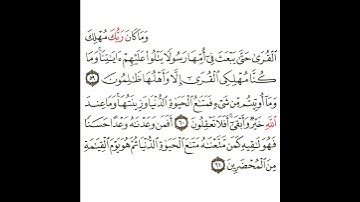 وَمَا كَانَ رَبُّكَ مُهْلِكَ
الْقُرَىٰ حَتَّىٰ يَبْعَثَ فِي أُمِّهَا رَسُولًا يَتْلُوا عَلَيْهِمْ ءَايَٰتِنَا ۚ وَمَا
كُنَّا مُهْلِكِي الْقُرَىٰ إِلَّا وَأَهْلُهَا ظَٰلِمُونَ ٥٩
وَمَا أُوتِيتُم مِّن شَيْءٍ فَمَتَٰعُ الْحَيَوٰةِ الدُّنْيَا وَزِينَتُهَا ۚ وَمَا عِندَ
اللَّهِ خَيْرٌ وَأَبْقَىٰ ۚ أَفَلَا تَعْقِلُونَ ٦٠ أَفَمَن وَعَدْنَٰهُ وَعْدًا حَسَنًا
فَهُوَ لَٰقِيهِ كَمَن مَّتَّعْنَٰهُ مَتَٰعَ الْحَيَوٰةِ الدُّنْيَا ثُمَّ هُوَ يَوْمَ الْقِيَٰمَةِ
مِنَ الْمُحْضَرِينَ ٦١